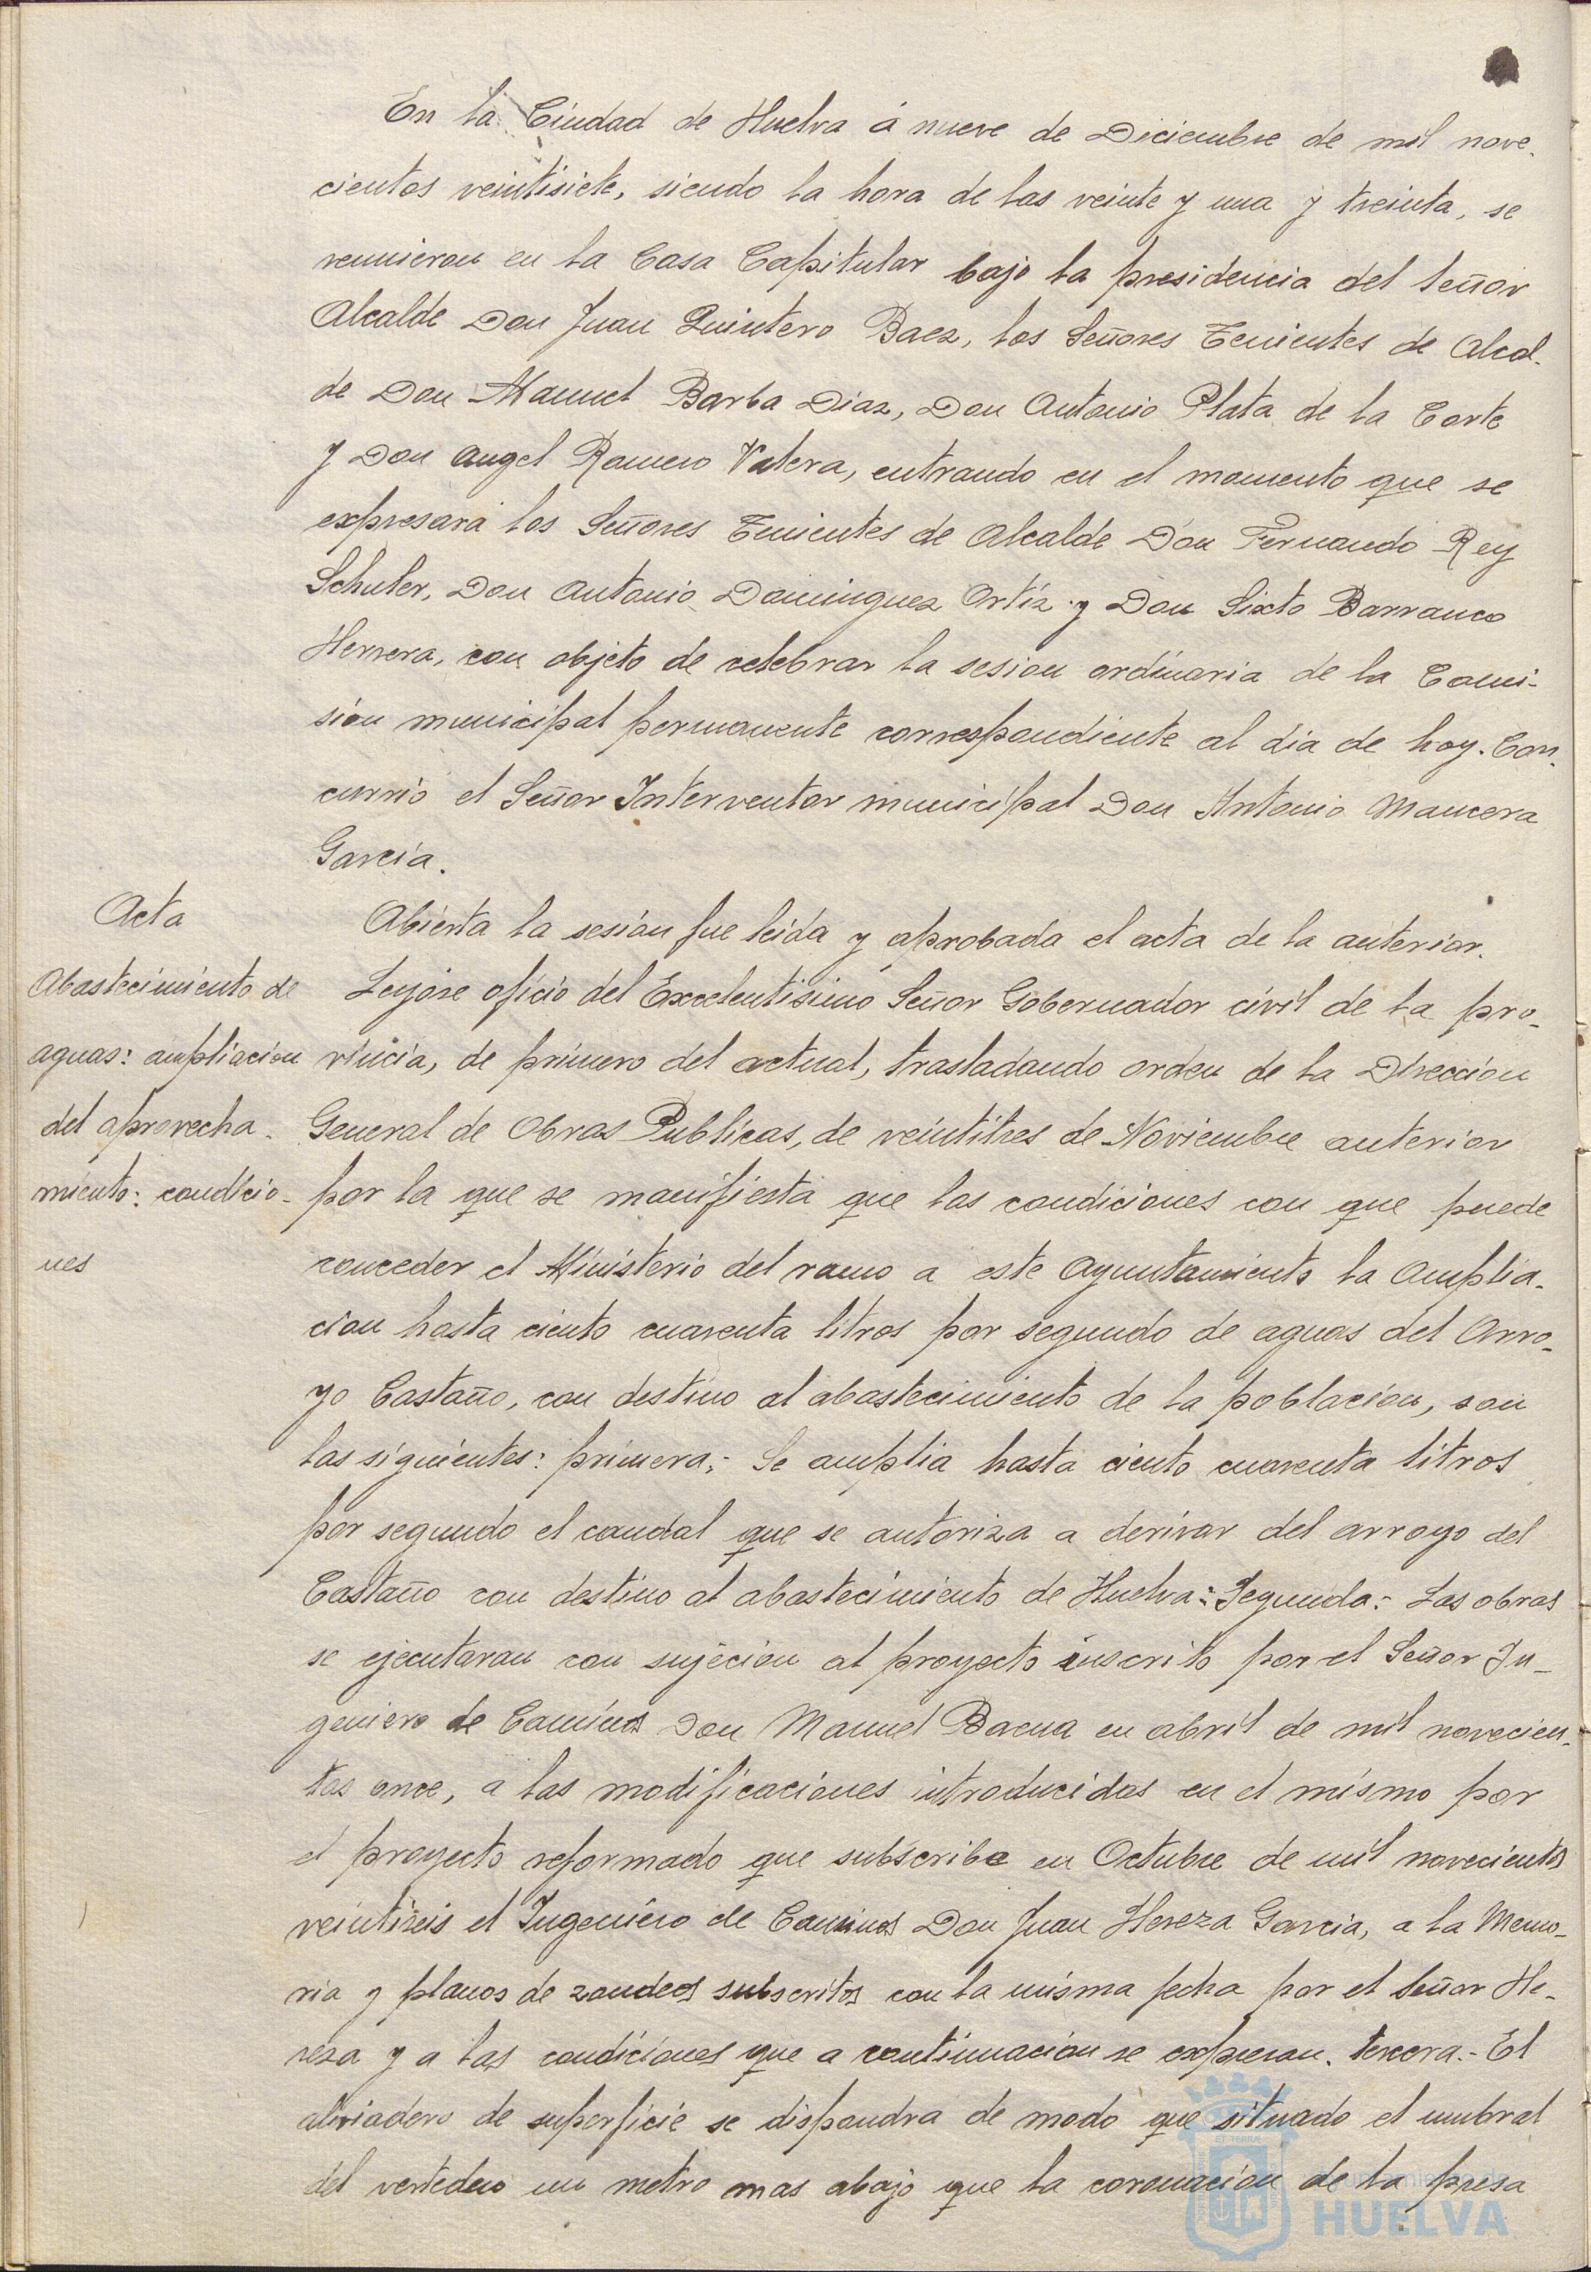 En la Ciudad de Huelva á nueve de Diciembre de mil nove-
cientos veintisiete, siendo la hora de las veinte y una y treinta, se
reunieron en la Casa Capitular bajo la presidencia del Señor
Alcalde Don Juan Quintero Baez, los Señores Tenientes de Alcal-
de Don Manuel Barba Diaz, Don Antonio Plata de la Corte
y Don Angel Romero Valera, entrando en el momento que se
expresará los Señores Tenientes de Alcalde Don Fernando Rey
Schuler, Don Antonio Dominguez Ortíz y Don Sixto Barranco
Herrera, con objeto de celebrar la sesion ordinaria de la Comi-
sión municipal permanente correspondiente al dia de hoy. Con-
currió el Señor Interventor municipal Don Antonio Mancera
García.
Acta
Abierta la sesión fue leida y aprobada el acta de la anterior.
Abastecimiento de
aguas: ampliacion
del aprovecha-
miento: condicio-
nes
Leyóse oficio del Excelentisimo Señor Gobernador civil de la pro-
vincia, de primero del actual, trasladando orden de la Direccion
General de Obras Publicas, de veintitres de Noviembre anterior
por la que se manifiesta que las condiciones con que puede
conceder el Ministerio del ramo a este Ayuntamiento la amplia-
cion hasta ciento cuarenta litros por segundo de aguas del Arro-
yo Castaño, con destino al abastecimiento de la poblacion, son
las siguientes: primera;- Se amplia hasta ciento cuarenta litros
por segundo el caudal que se autoriza a derivar del arroyo del
Castaño con destino al abastecimiento de Huelva:- Segunda:- Las obras
se ejecutaran con sujecion al proyecto suscrito por el Señor In-
geniero de Caminos Don Manuel Baena en abril de mil novecien-
tos once, a las modificaciones introducidas en el mismo por
el proyecto reformado que subscribe en Octubre de mil novecientos
veintiseis el Ingeniero de Caminos Don Juan Hereza Garcia, a la Memo-
ria y planos de zondeos subscritos con la misma fecha por el Señor He-
reza y a las condiciones que a continuacion se expresan. tercera.- El
aliviadero de superficie se dispondra de modo que situado el umbral
del vertedero un metro mas abajo que la coronacion de la presa
Ayuntamiento de
HUELVA